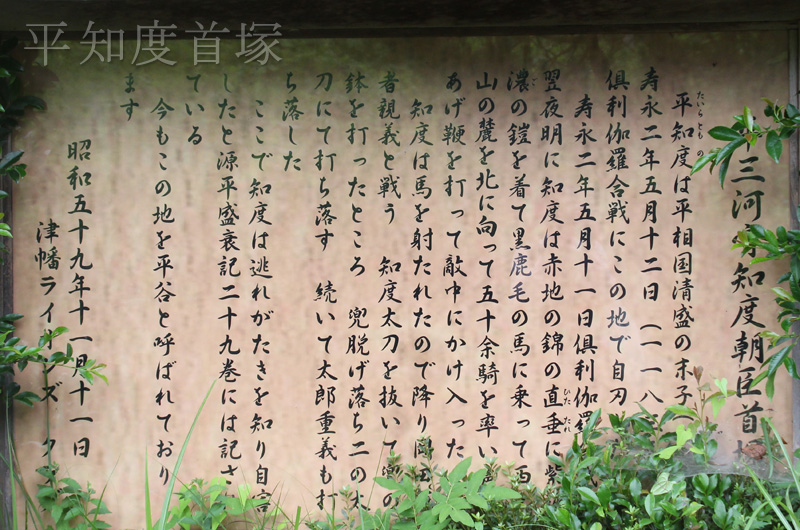 平知度首塚
三河守知度朝臣首塚
平知度は平相国清盛の末子
寿永二年五月十二日(一一八
倶利伽羅合戦にこの地で自刃
寿永二年五月十一日倶利伽羅
翌夜明に知度は赤地の錦の直垂に紫
濃の鎧を着て黒鹿毛の馬に乗って西
山の麓を北に向って五十余騎を率い
あげ鞭を打って敵中にかけ入った
知度は馬を射たれたので降り岡田
者親義と戦う 知度太刀を抜いて兜の
鉢を打ったところ 兜脱げ落ち二の太
刀にて打ち落す 続いて太郎重義も打
ち落した
ここで知度は逃れがたきを知り自害
したと源平盛衰記二十九巻には記さ
ている
今もこの地を平谷と呼ばれており
ます
昭和五十九年十一月十一日
津幡ライオンズ ク